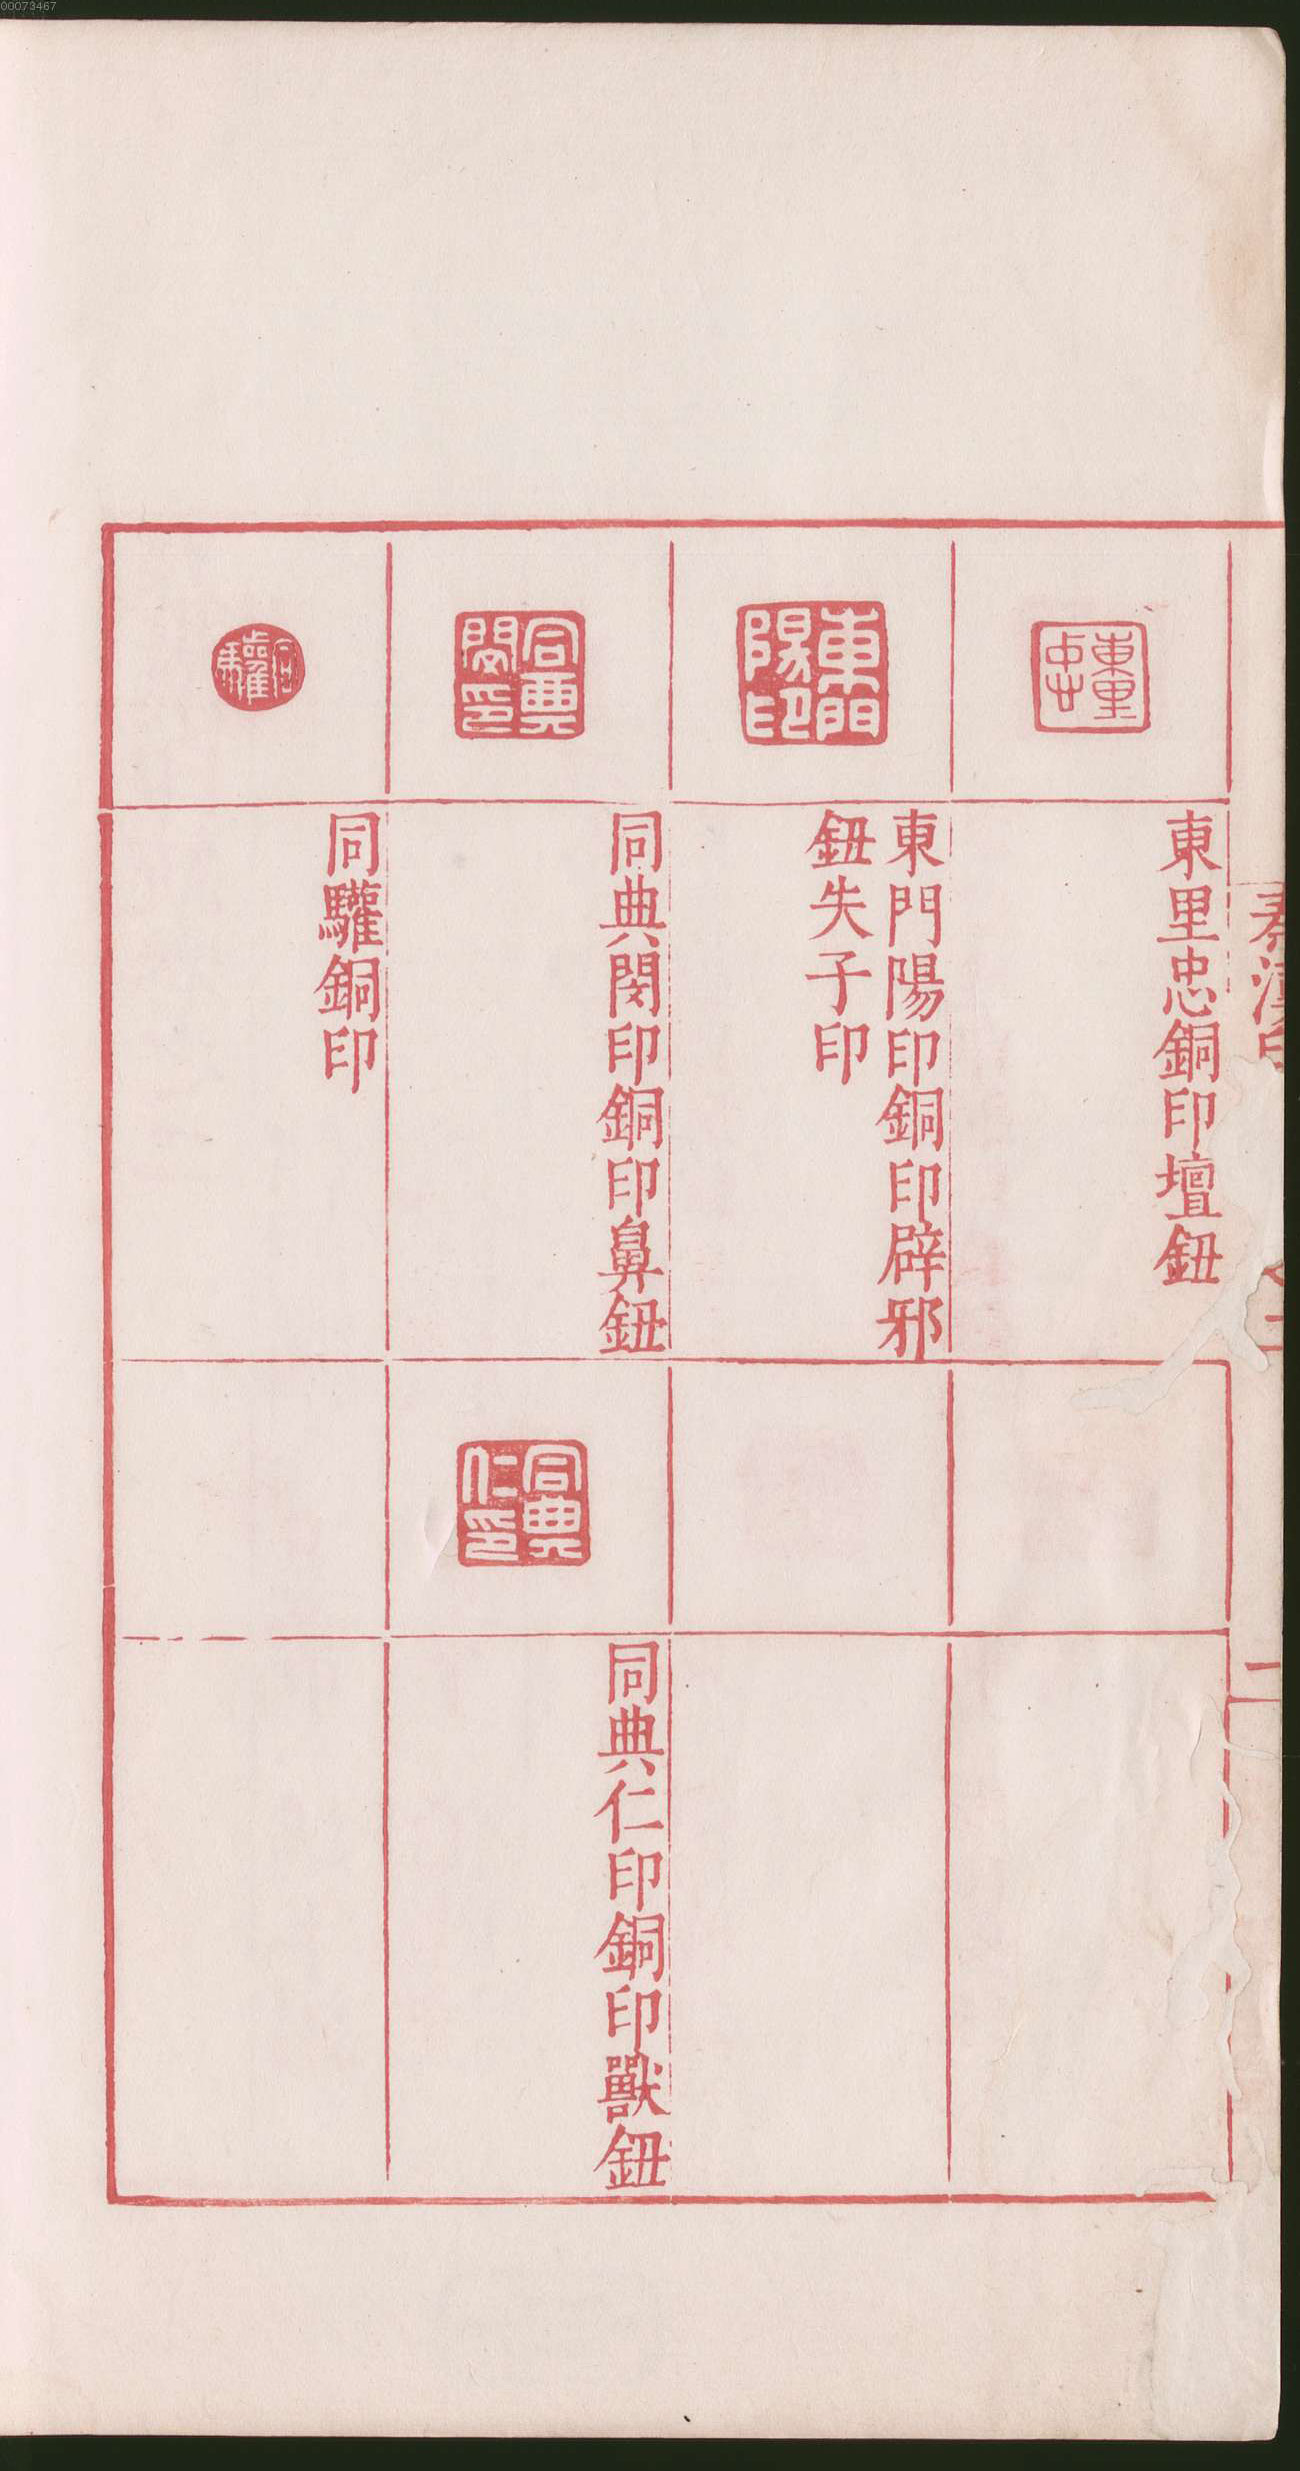 00073467
秦漢印
二
東里忠
東里忠銅印壇鈕
東門陽印
東門陽印銅印辟邪
鈕失子印
同典閔印
同典閔印銅印鼻鈕
同典仁印
同典仁印銅印獸鈕
同驩
同驩銅印